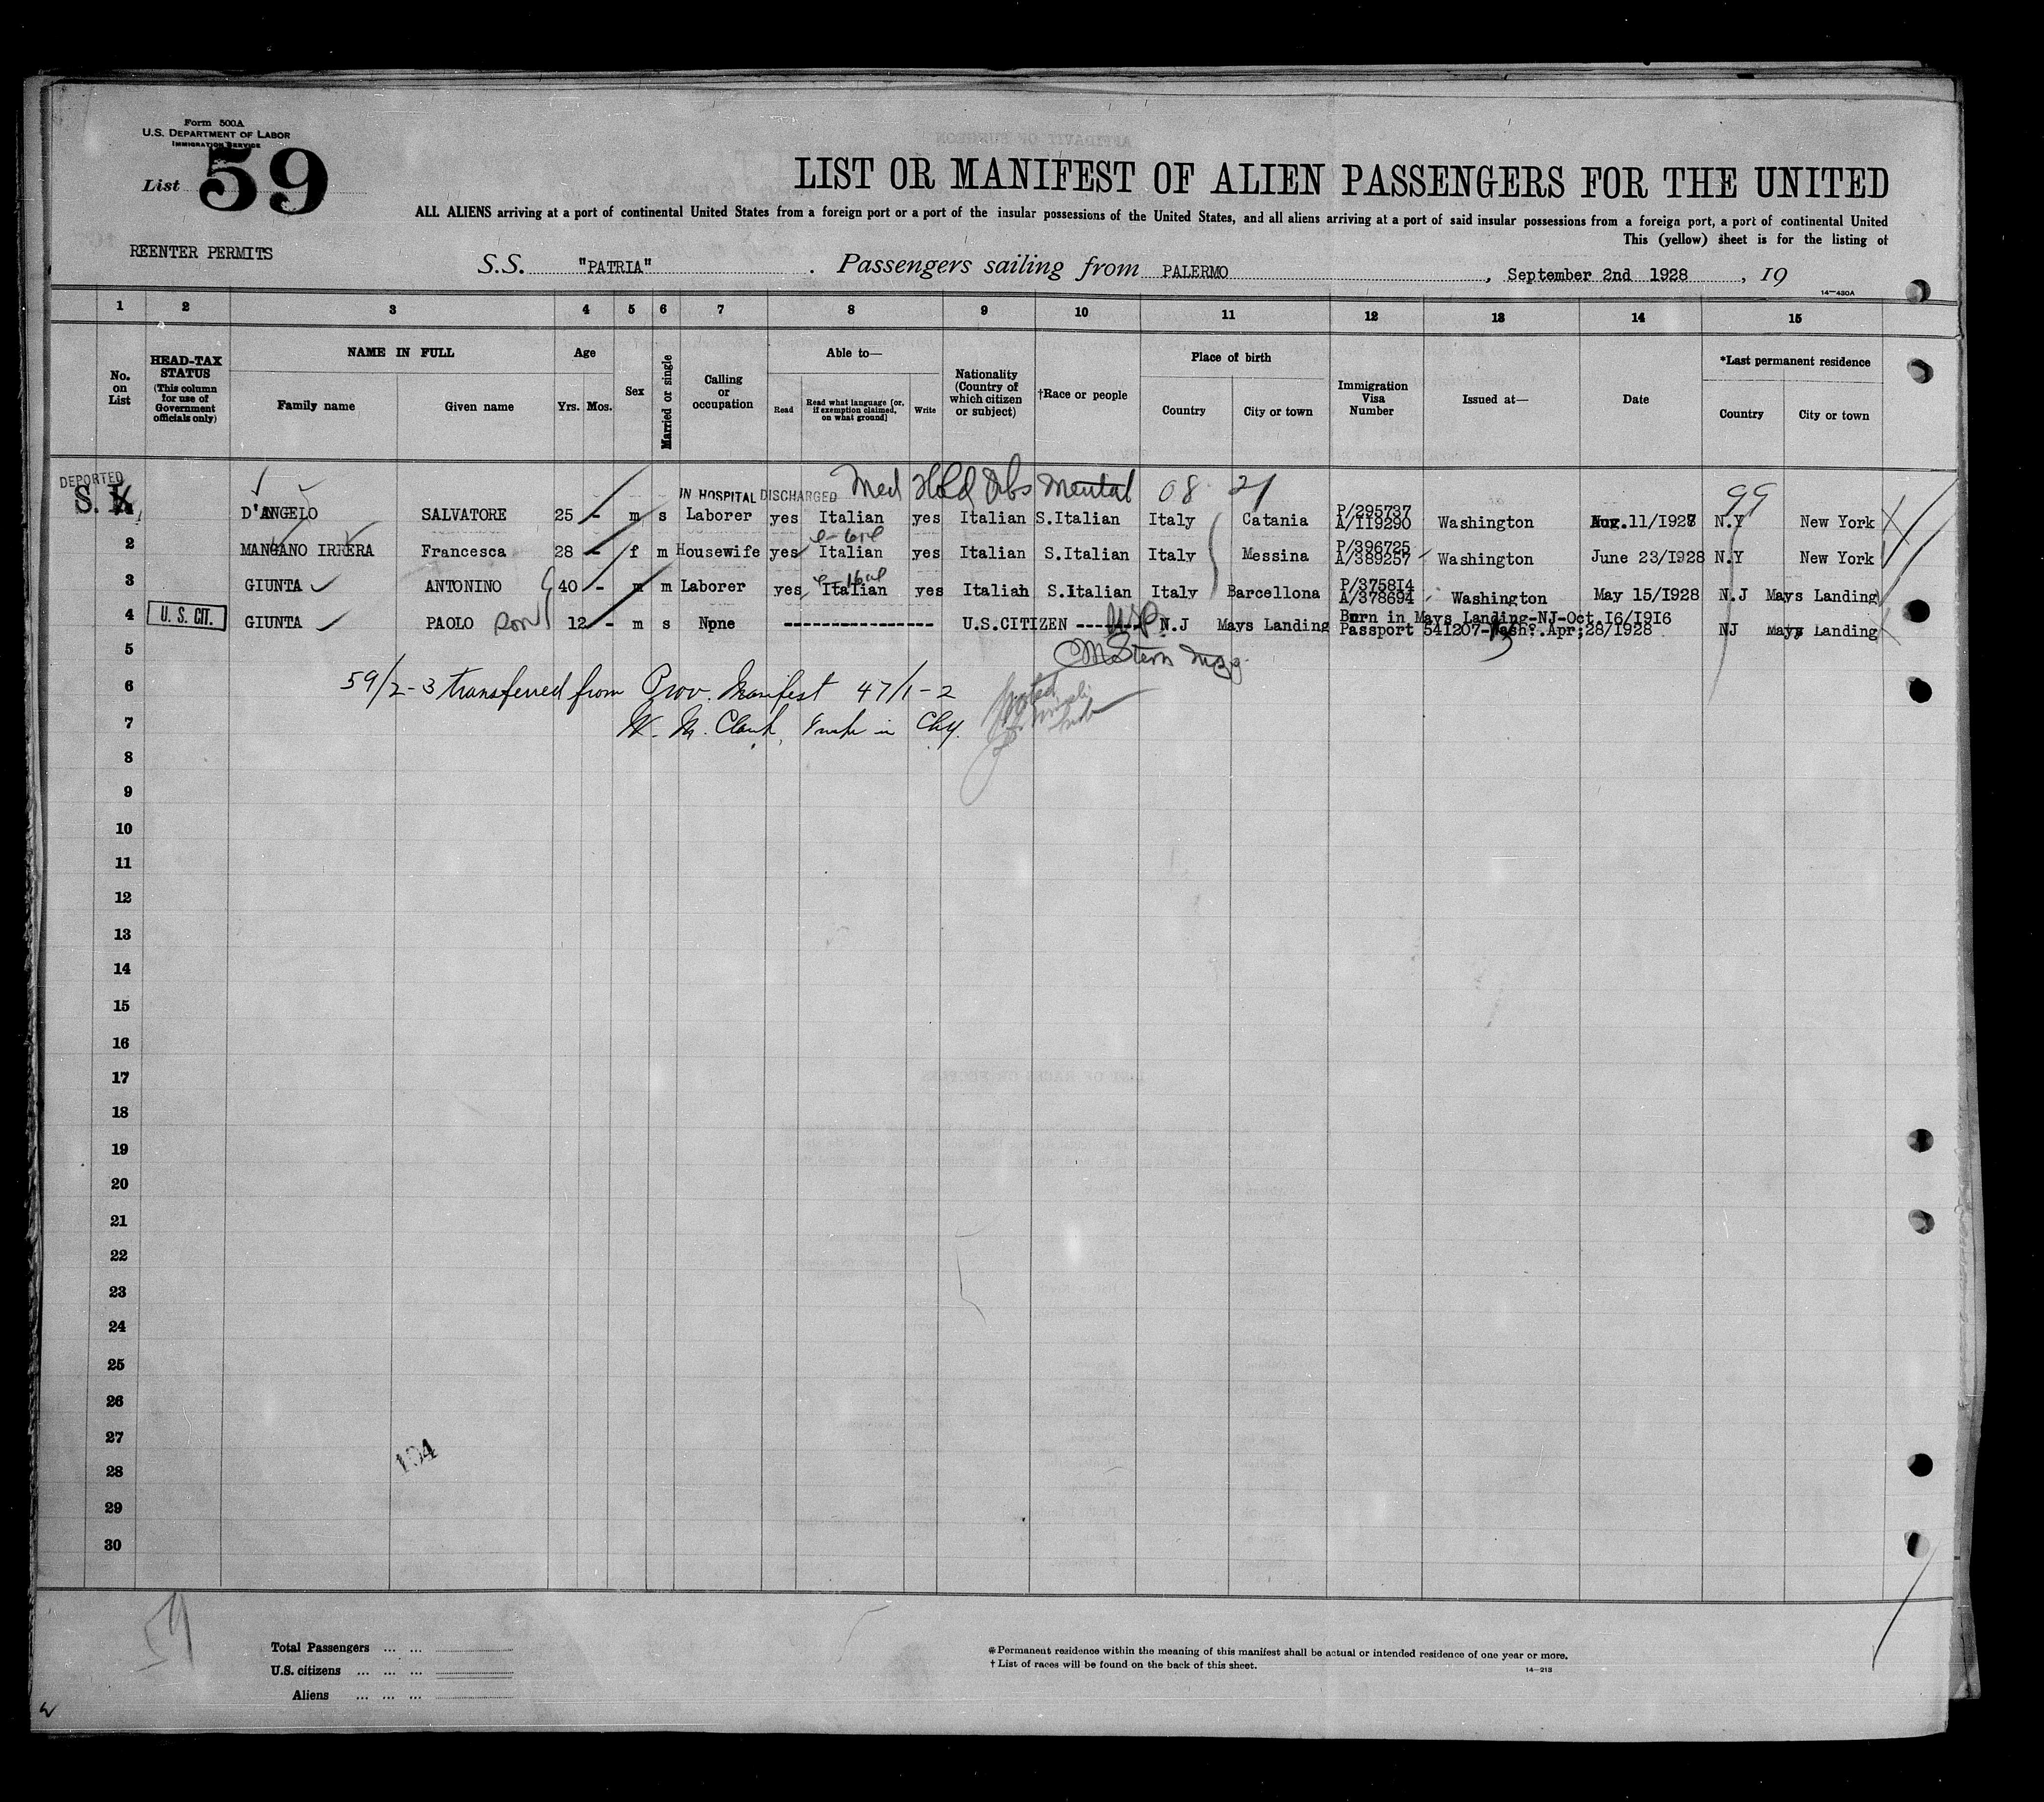 Form 500A
U.S. DEPARTMENT OF LABOR
IMMIGRATION SERVICE
List 59
LIST OR MANIFEST OF ALIEN PASSENGERS FOR THE UNITED
ALL ALIENS arriving at a port of continental United States from a foreign port or a port of the insular possessions of the United States, and all aliens arriving at a port of said insular possessions from a foreign port, a port of continental United
This (yellow) sheet is for the listing of
REENTER PERMITS
S.S. "PATRIA" . Passengers sailing from PALERMO , September 2nd 1928 , 19
14—430A
1 2 3 4 5 6 7 8 9 10 11 12 13 14 15
No. on List
HEAD-TAX STATUS (This column for use of Government officials only)
NAME IN FULL
Family name Given name
Age
Yrs. Mos.
Sex
Married or single
Calling or occupation
Able to—
Read Read what language [or, if exemption claimed, on what ground] Write
Nationality (Country of which citizen or subject)
†Race or people
Place of birth
Country City or town
Immigration Visa Number
Issued at—
Date
*Last permanent residence
Country City or town
DEPORTED
S. I.
IN HOSPITAL DISCHARGED Med Hold Obs Mental 08 21 99
D'ANGELO SALVATORE 25 - m s Laborer yes Italian yes Italian S.Italian Italy Catania P/295737 A/119290 Washington 11/1927 N.Y New York
2 MANGANO IRRERA Francesca 28 - f m Housewife yes Italian yes Italian S.Italian Italy Messina P/396725 A/389257 Washington June 23/1928 N.Y New York
3 GIUNTA ANTONINO 40 - m m Laborer yes Italian yes Italian S.Italian Italy Barcellona P/375814 A/378694 Washington May 15/1928 N.J Mays Landing
4 U. S. CIT. GIUNTA PAOLO son 12 - m s None ---------------- U.S.CITIZEN ------- N.J Mays Landing Born in Mays Landing-NJ-Oct.16/1916 Passport 541207-Wash:.Apr;28/1928 NJ Mays Landing
5 M Stern
6 59/2-3 transferred from Prov. Manifest 47/1-2
7 W. M. Clark, in Chg.
8
9
10
11
12
13
14
15
16
17
18
19
20
21
22
23
24
25
26
27
104
28
29
30
59
Total Passengers ... ...
U.S. citizens ... ... ...
Aliens ... ... ...
* Permanent residence within the meaning of this manifest shall be actual or intended residence of one year or more.
† List of races will be found on the back of this sheet.
14—213